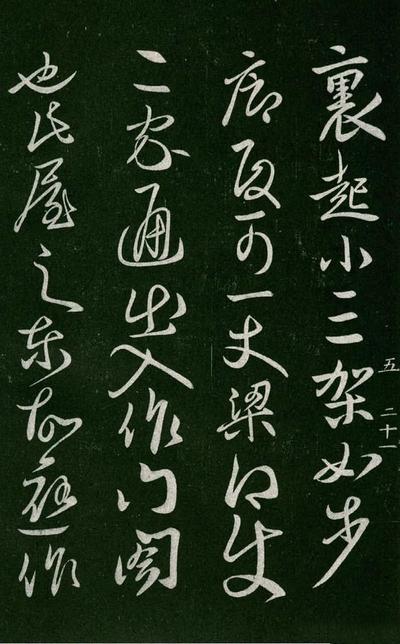 裏起小三架如步
廊可一丈梁使
二家通出入作門閣
也此屋之東應作
五 二十一